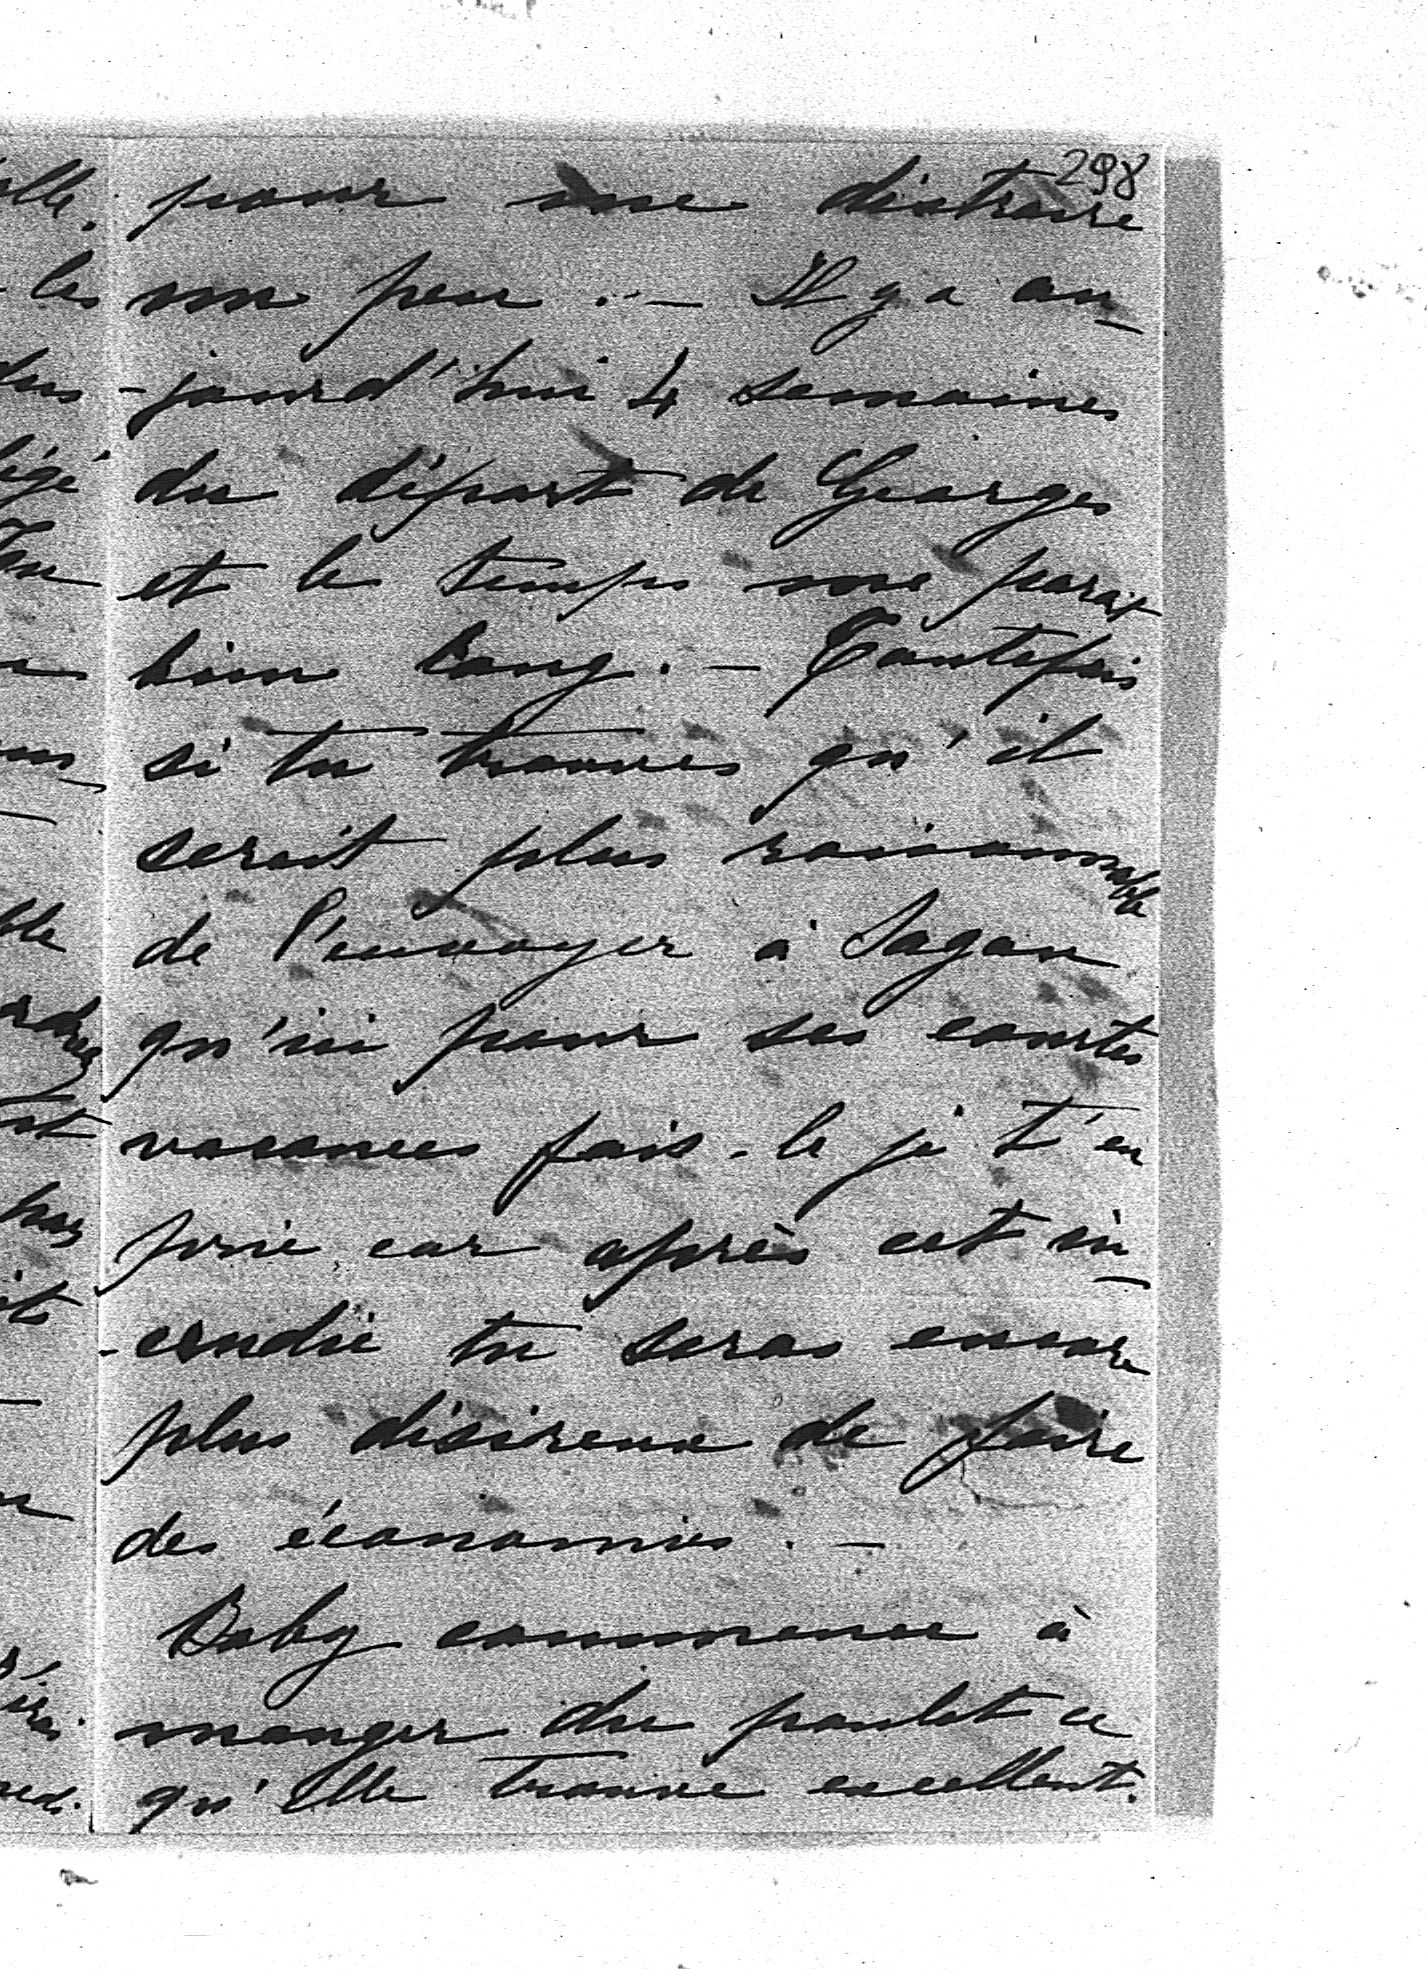 298
pour me distraire
un peu. — Il y a au-
-jourd'hui 4 semaines
du départ de Georges
et le temps me parait
bien long. — Toutefois
si tu trouves qu'il
serait plus raisonnable
de l'envoyer à Sagan
qu'ici pour ses courtes
vacances fais-le je t'en
prie car après cet in-
-cendie tu seras encore
plus désireux de faire
des économies. —
Baby commence à
manger du poulet ce
qu'elle trouve excellent.